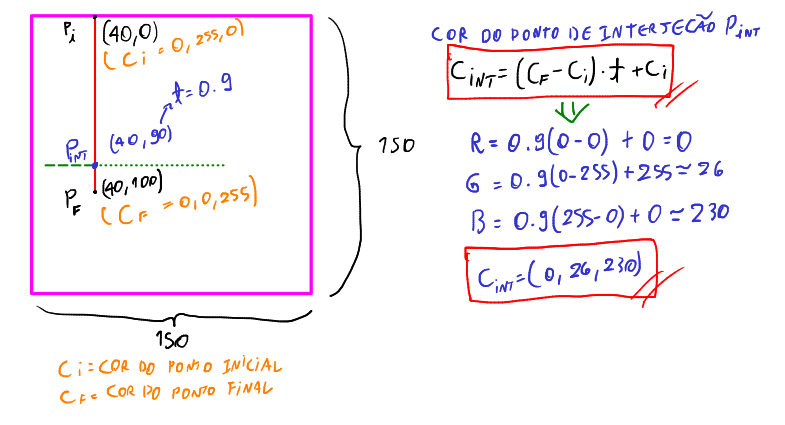 Pi (40,0)
(Ci = 0,255,0)
t=0.9
PINT (40,90)
PF (40,100)
(CF = 0,0,255)
150
150
Ci=COR DO PONTO INICIAL
CF= COR DO PONTO FINAL
COR DO PONTO DE INTERSECÃO PINT
CINT=(CF-Ci).t+Ci
R=0.9(0-0)+0=0
G=0.9(0-255)+255≃26
B=0.9(255-0)+0≃230
CINT=(0,26,230)